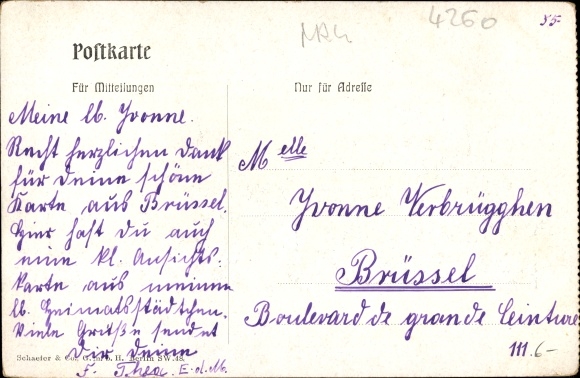 4260
85-
Postkarte
Für Mitteilungen
Nur für Adresse
Meine lb. Yvonne.
Recht herzlichen Dank
für Deine schöne
Karte aus Brüssel.
Hier hast Du auch
eine kl. Ansichts-
karte aus meinem
lb. Heimatsstädtchen.
Viele Grüße sendet
Dir Deine
F. Thea. E.d.M.
Melle
Yvonne Verbrügghen
Brüssel
Boulevard de grande Ceinture
111.
Schaefer & Co. G. m. b. H. Berlin SW.48.